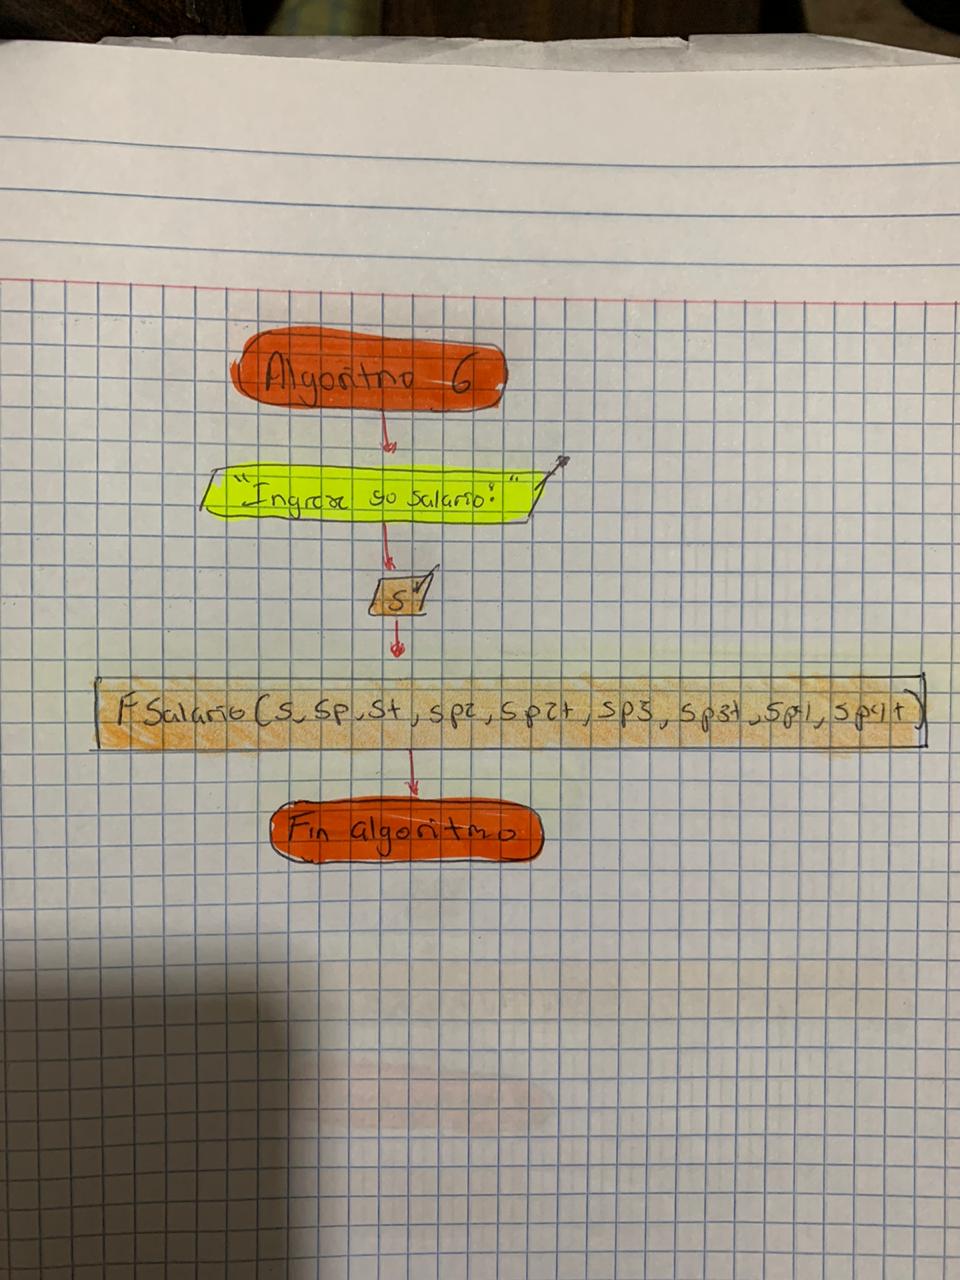 Algoritmo 6
"Ingrese so salario:"
S
F Salario (s, sp, st, sp2, sp2t, sp3, sp3t, sp4, sp4t)
Fin algoritmo